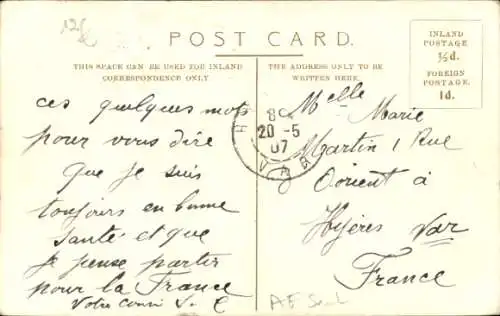 POST CARD.
THIS SPACE CAN BE USED FOR INLAND
CORRESPONDENCE ONLY
THE ADDRESS ONLY TO BE
WRITTEN HERE.
INLAND
POSTAGE
½d.
FOREIGN
POSTAGE.
1d.
ces quelques mots
pour vous dire
que je suis
toujours en bonne
santé et que
je pense partir
pour la France
Votre
20-5
07
VAR
Melle Marie
Martin 1 Rue
Orient à
Hyères Var
France